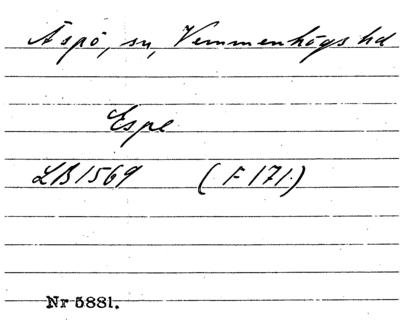 Äspö, sn, Vemmenhögs hd
Espe
LB 1569 (F 171.)
Nr 5881.